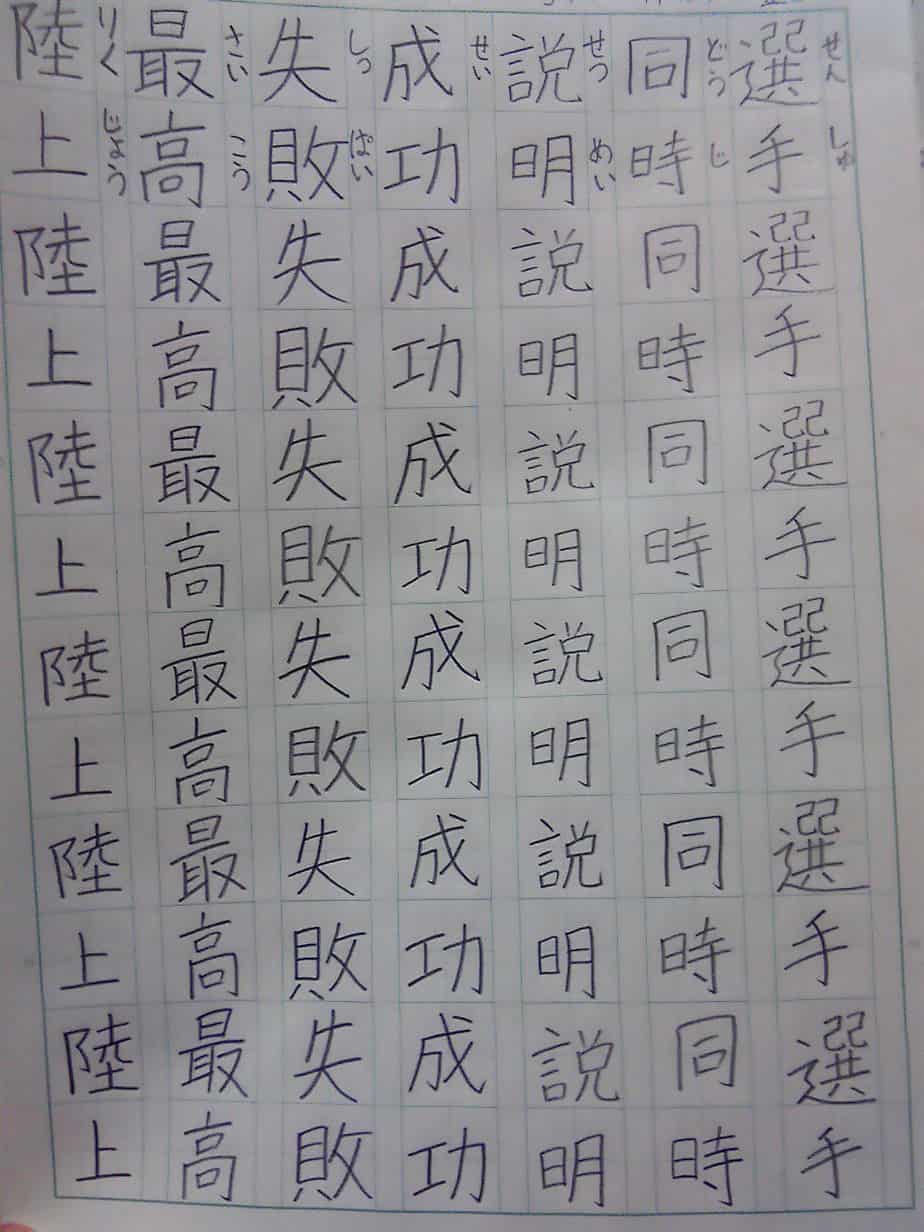 せんしゅ
選手選手選手選手選手選手
どうじ
同時同時同時同時同時同時
せつめい
説明説明説明説明説明説明
せい
成功成功成功成功成功成功
しっぱい
失敗失敗失敗失敗失敗失敗
さいこう
最高最高最高最高最高最高
りくじょう
陸上陸上陸上陸上陸上陸上